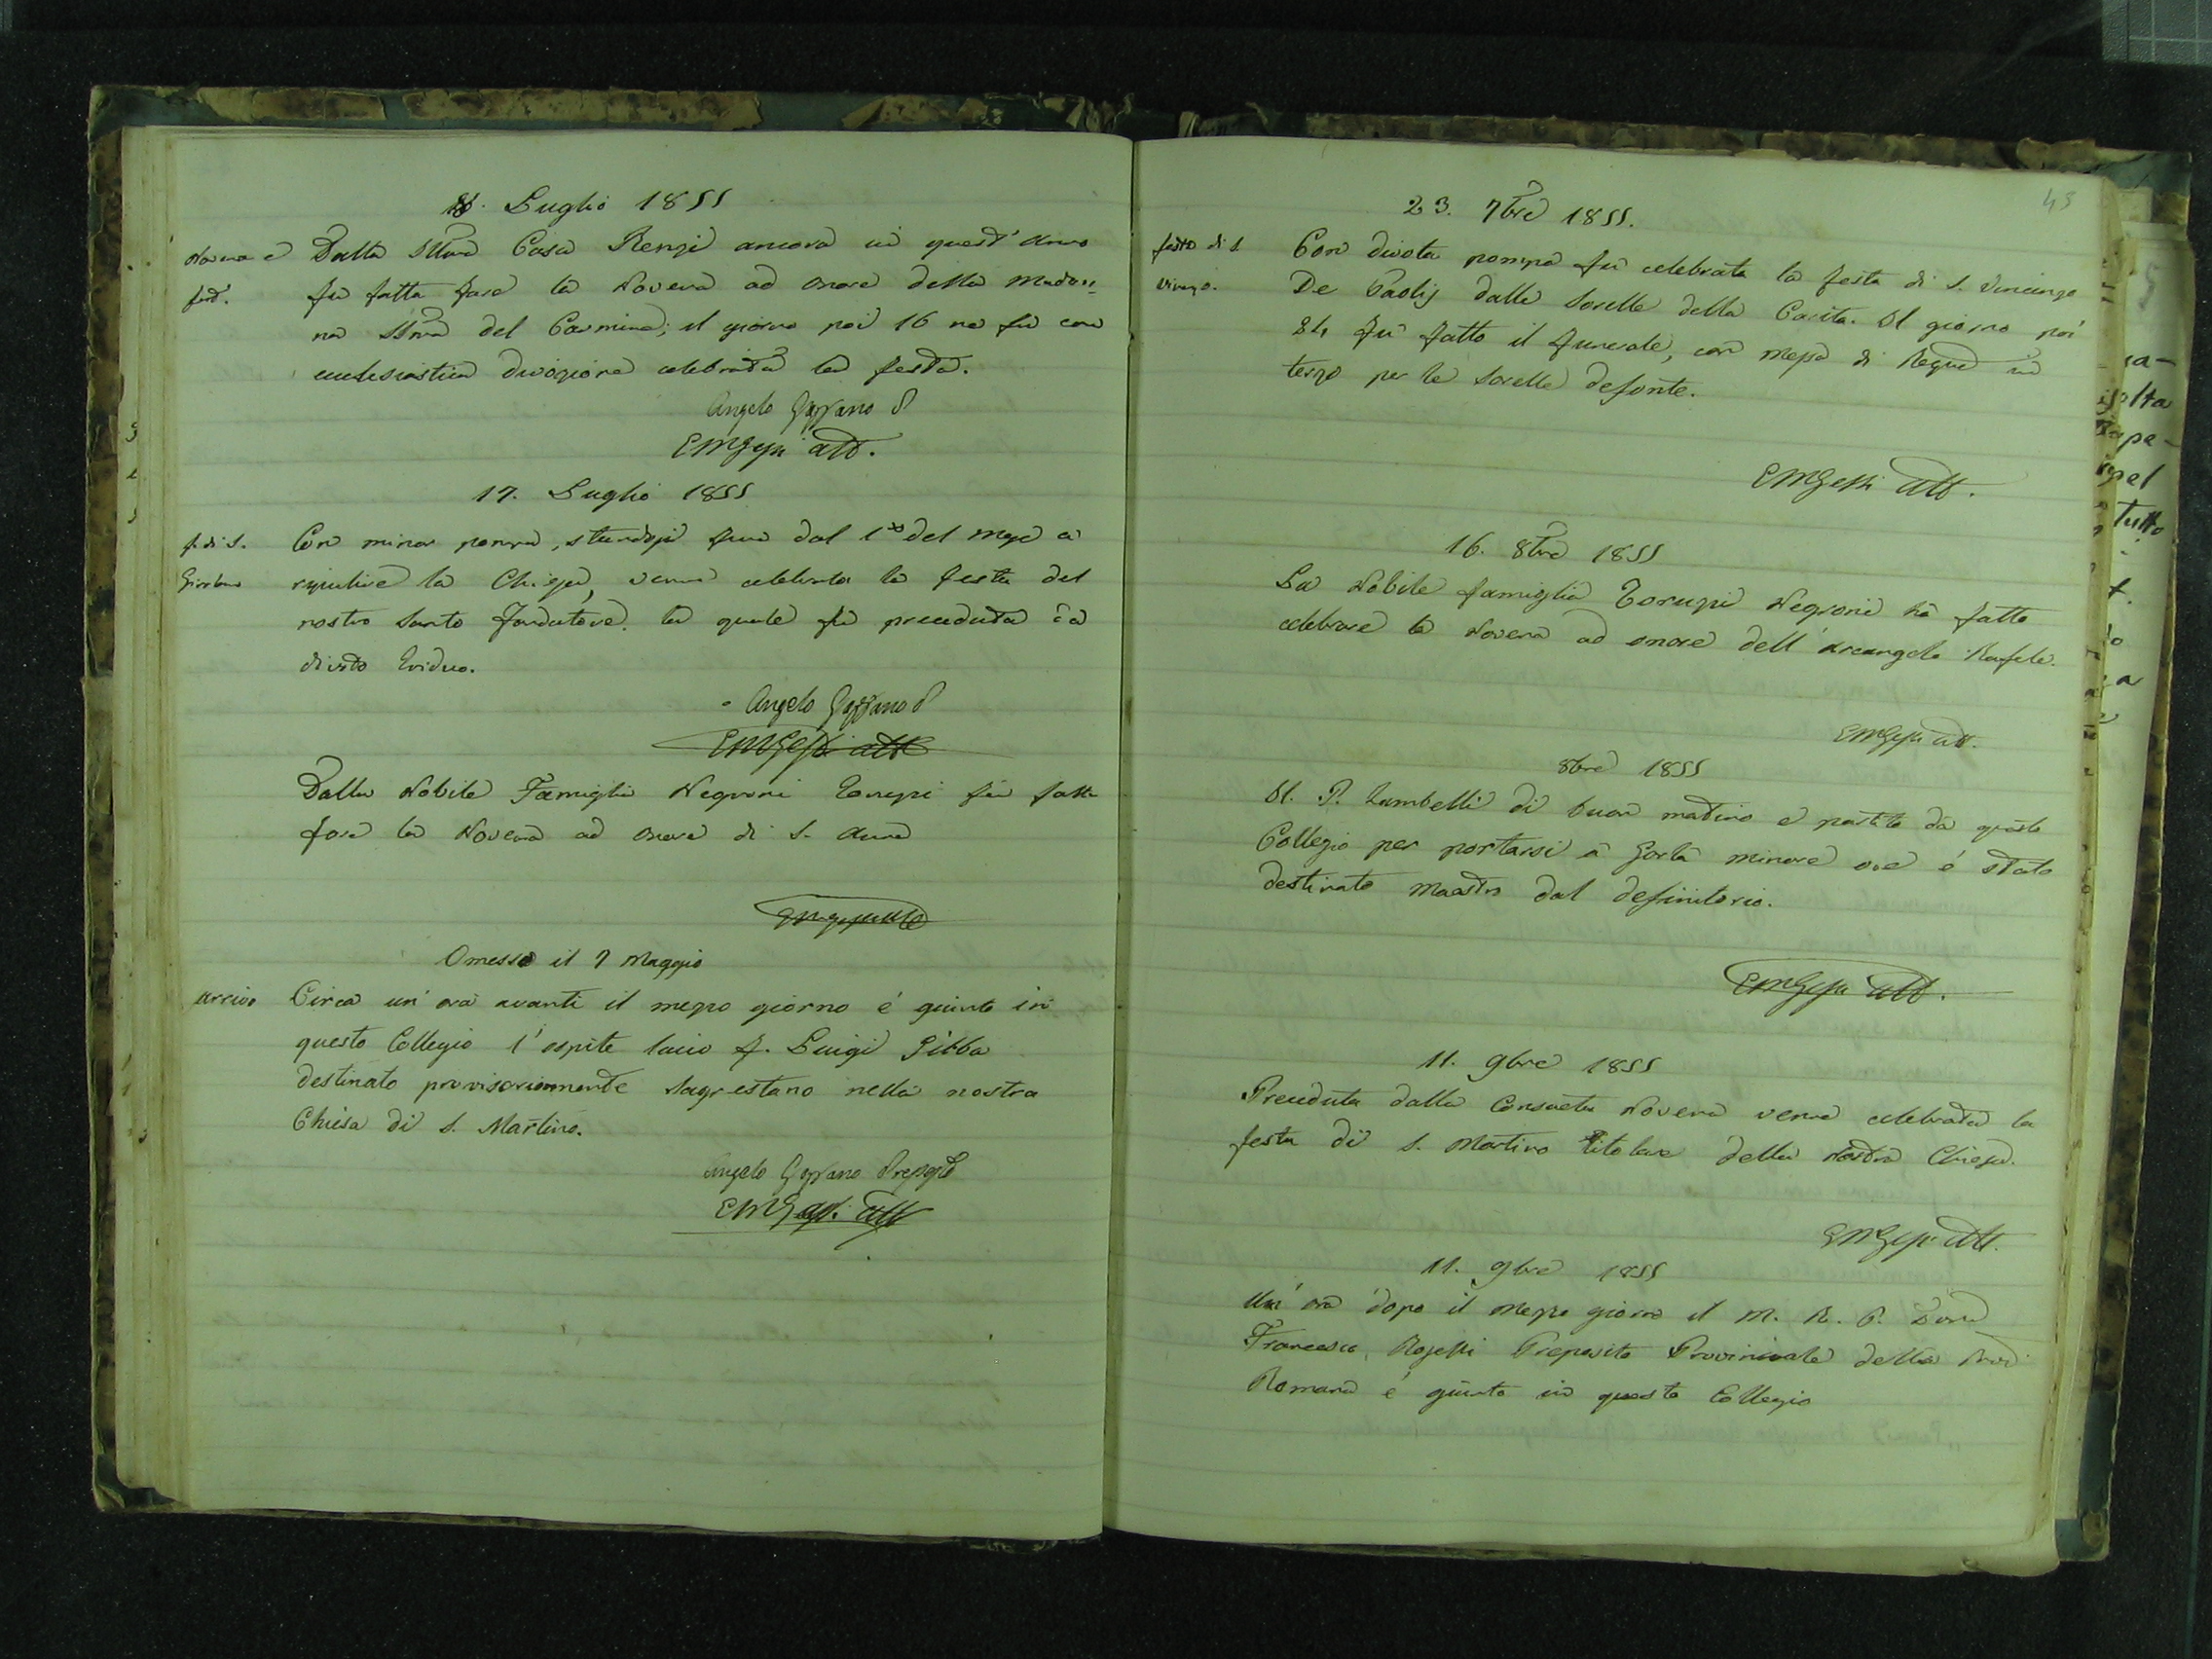 16. Luglio 1855
Novena e
fest.
Dalla Illma Casa Renzi ancora in quest'anno
fu fatta fare la Novena ad onore della Madon=
na SSma del Carmine; il giorno poi 16 ne fu con
ecclesiastica divozione celebrata la festa.
Angelo Gazzano P
EMGessi att.
17. Luglio 1855
f. di S.
Girolamo
Con minor pompa, dal 1º del mese a
ripulire la Chiesa, venne celebrata la festa del
nostro Santo fondatore. la quale fu preceduta da
divoto triduo.
Angelo Gazzano P
EMGessi att
Dalla Nobile Famiglia Negroni Toruzzi fu fatta
fare la Novena ad onore di S. Anna
EMGessi att
Omesso il 7 Maggio
arrivo
Circa un'ora avanti il mezzo giorno é giunto in
questo Collegio l'ospite laico f. Luigi Gibba
destinato provisoriamente Sagrestano nella nostra
Chiesa di S. Martino.
Angelo Gazzano Preposto
EMGessi att
43
23. 7bre 1855.
festa di S.
Vincenzo.
Con divota pompa fu celebrata la festa di S. Vincenzo
De Paolis dalle Sorelle della Carita. Il giorno poi
24 fu fatto il funerale, con messa di Requie in
terzo per le Sorelle defonte.
EMGessi att.
16. 8bre 1855
La Nobile famiglia Toruzzi Negroni ha fatto
celebrare la Novena ad onore dell'Arcangelo Rafele.
EMGessi att.
8bre 1855
Il. P. Zambelli di buon matino e partito da questo
Collegio per portarsi a Gorla minore ove é stato
destinato Maestro dal definitorio.
EMGessi att.
11. 9bre 1855
Preceduta dalla Consueta Novena venne celebrata la
festa di S. Martino titolare della Nostra Chiesa.
EMGessi att.
11. 9bre 1855
Un'ora dopo il mezzo giorno il M. R. P. Don
Francesco Preposito Provinciale della Prov
Romana é giunto in questo Collegio